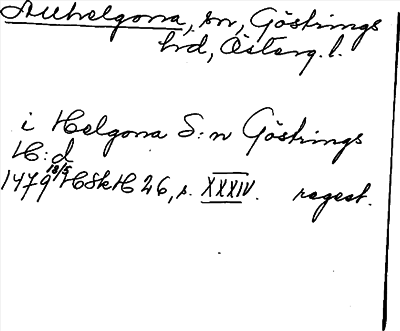 Allhelgona, sn, Göstrings
hd, Österg. l.
i Helgona S:n Göstrings
H:d
1479 18/5 HSkH 26, s. XXXIV. regest.